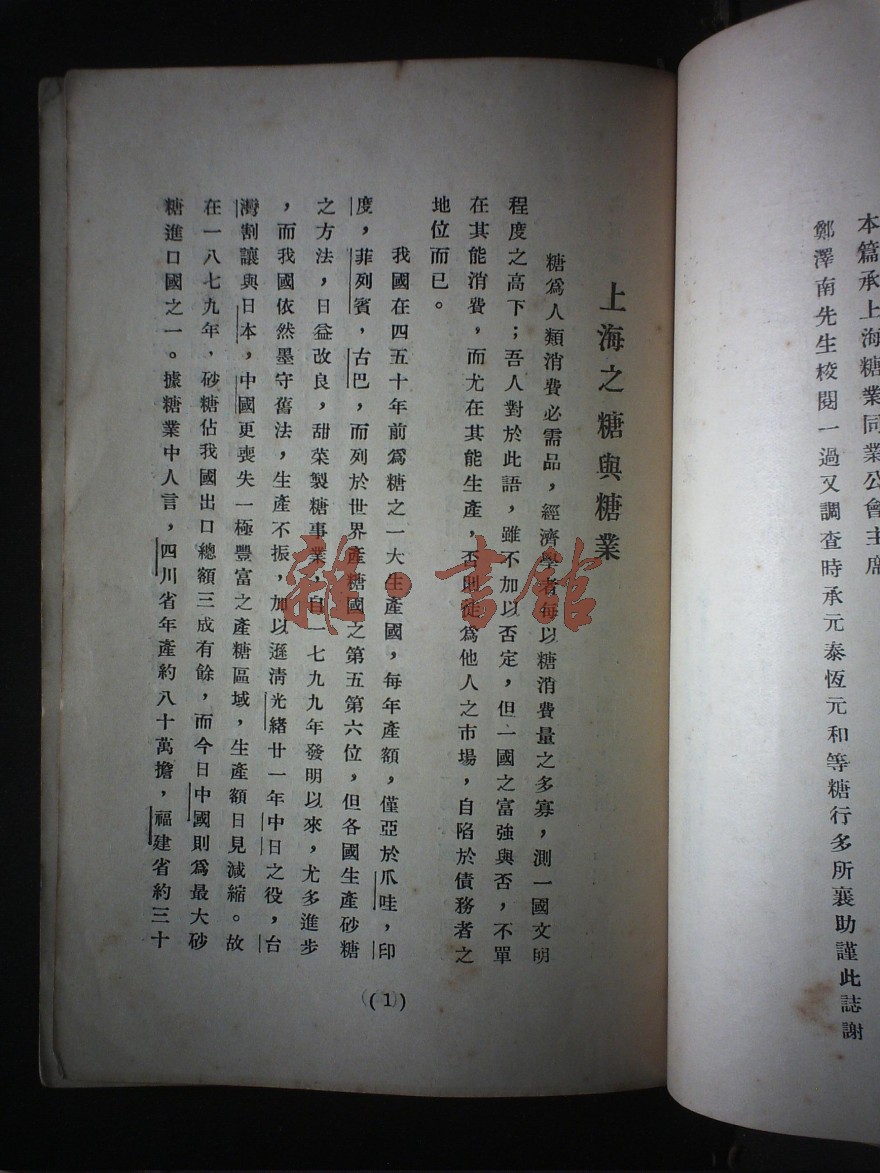 本篇承上海糖業同業公會主席
鄭澤南先生校閱一過又調查時承元泰恆元和等糖行多所襄助謹此誌謝
上海之糖與糖業
糖爲人類消費必需品，經濟學者每以糖消費量之多寡，測一國文明
程度之高下；吾人對於此語，雖不加以否定，但一國之富強與否，不單
在其能消費，而尤在其能生產，否則徒爲他人之市場，自陷於債務者之
地位而已。
我國在四五十年前爲糖之一大生產國，每年產額，僅亞於爪哇，印
度，菲列賓，古巴，而列於世界產糖國之第五第六位，但各國生產砂糖
之方法，日益改良，甜菜製糖事業，自一七九九年發明以來，尤多進步
，而我國依然墨守舊法，生產不振，加以遜清光緒廿一年中日之役，台
灣割讓與日本，中國更喪失一極豐富之產糖區域，生產額日見減縮。故
在一八七九年，砂糖佔我國出口總額三成有餘，而今日中國則爲最大砂
糖進口國之一。據糖業中人言，四川省年產約八十萬擔，福建省約三十
(1)
雜·書館